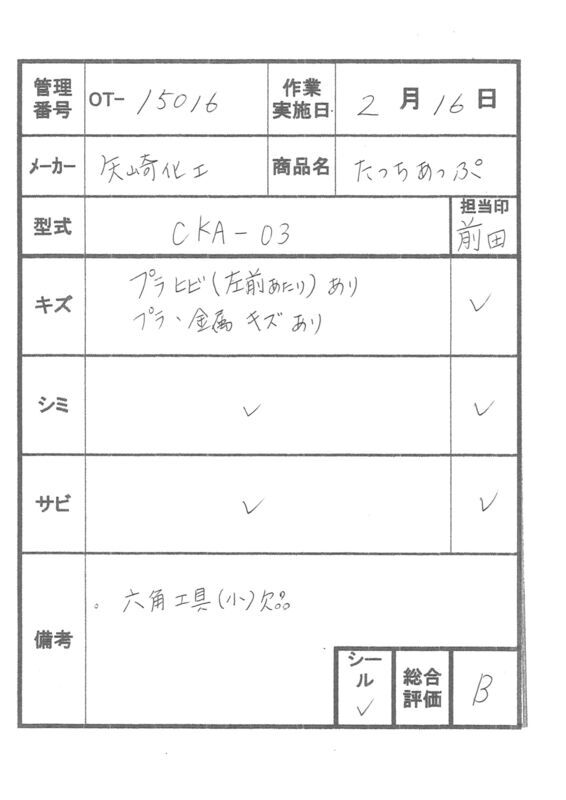 管理番号 OT- 15016 作業実施日 2月16日
メーカー 矢崎化工 商品名 たっちあっぷ
型式 CKA-03 担当印 前田
キズ プラヒビ(左前あたり)あり ✓
プラ、金属 キズあり
シミ ✓ ✓
サビ ✓ ✓
備考 。六角工具(小)欠品
シール ✓ 総合評価 B